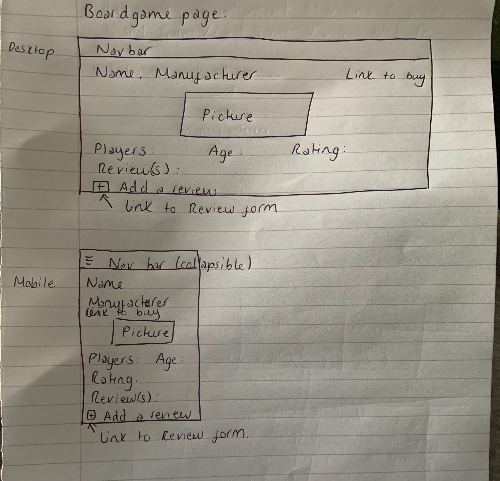 Boardgame page:
Desktop
Nav bar
Name, Manufacturer Link to buy
Picture
Players: Age: Rating:
Review(s):
+ Add a review
Link to Review form
Mobile
Nav bar (collapsible)
Name
Manufacturer
Link to buy
Picture
Players: Age:
Rating.
Review(s):
+ Add a review
Link to Review form.